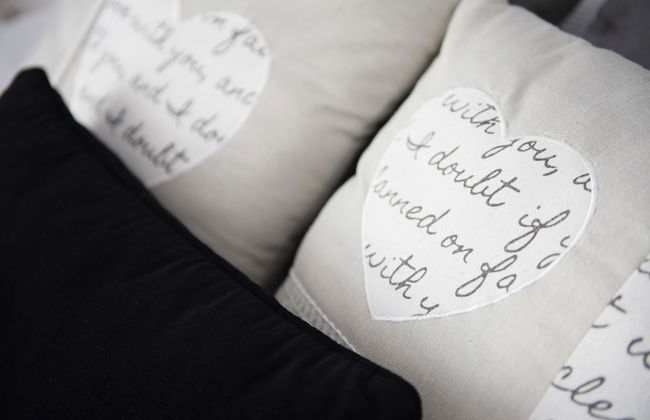 on fa
with you, anc
you, and I do
I doubt
with you, a
I doubt if y
anned on fa
with y
cle